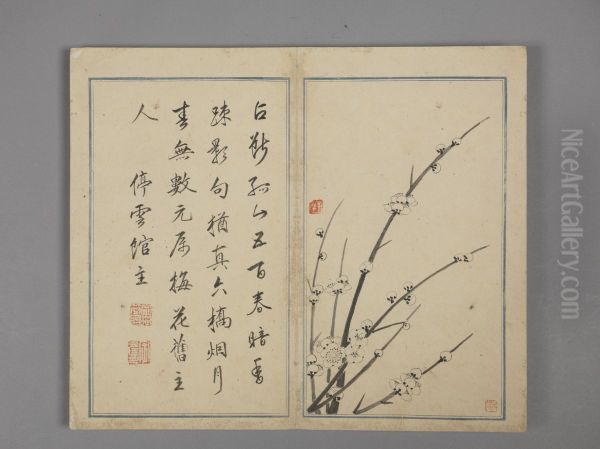 占斷孤山五百春暗香
疎影句猶真六橋烟月
春無數元屬梅花舊主
人 停雲館主
NiceArtGallery.com